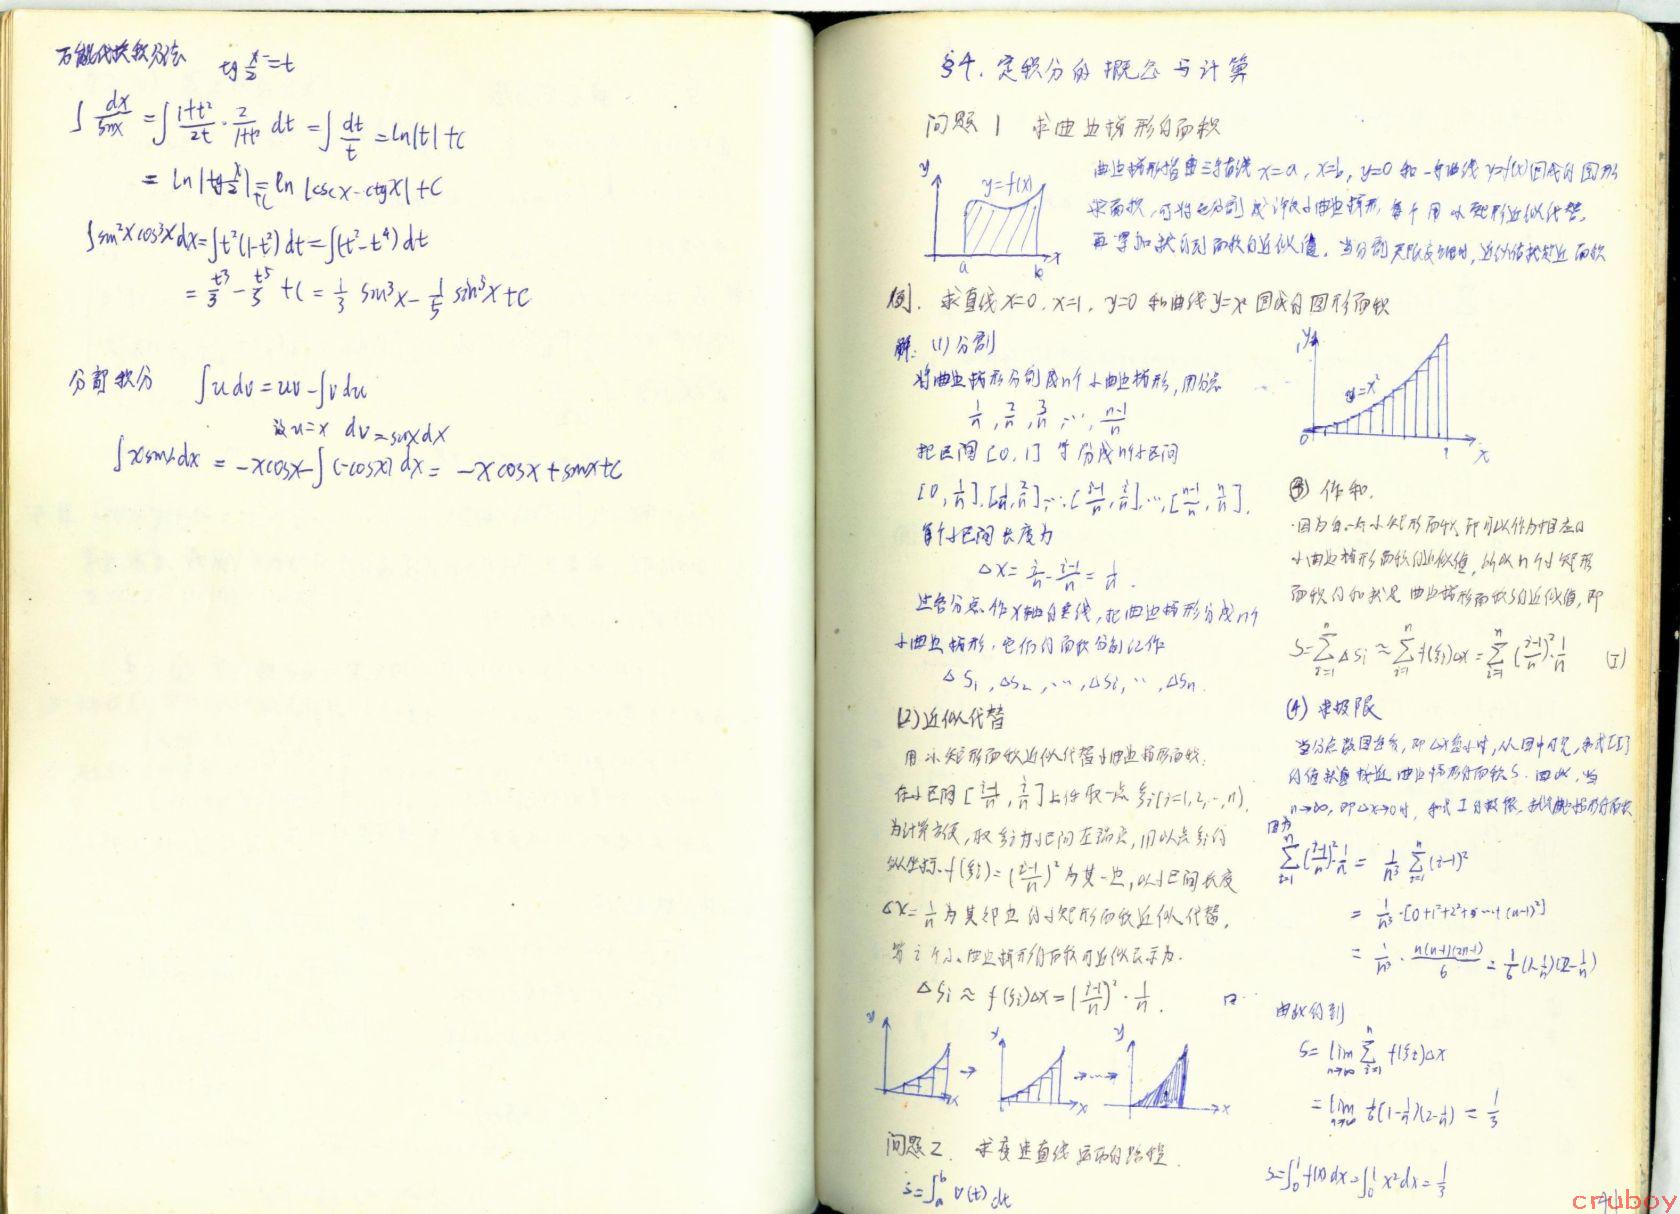 万能代换积分法 tg x/2 = t
∫ dx/sinx = ∫ (1+t²)/2t · 2/(1+t²) dt = ∫ dt/t = ln|t| + c
= ln|tg x/2| + c = ln |cscx - ctgx| + C
∫sin²x cos³x dx = ∫t²(1-t²) dt = ∫(t²-t⁴) dt
= t³/3 - t⁵/5 + C = 1/3 sin³x - 1/5 sin⁵x + C
分部积分 ∫u dv = uv - ∫v du
设 u=x dv=sinxdx
∫xsinxdx = -xcosx - ∫(-cosx) dx = -xcosx + sinx + C
§4. 定积分的概念与计算
问题1 求曲边梯形的面积
y
y=f(x)
a b x
曲边梯形指由三条直线 x=a, x=b, y=0 和一条曲线 y=f(x)围成的图形
求面积,可将它分割成许多小曲边梯形,每个用小矩形近似代替,
再累加就得到面积的近似值。当分割无限变细时,近似值就趋近面积
例. 求直线x=0, x=1, y=0 和曲线y=x²围成的图形面积
解: (1) 分割
将曲边梯形分割成n个小曲边梯形,用分点
1/n, 2/n, 3/n, …, (n-1)/n
把区间[0,1]等分成n个小区间
[0, 1/n], [1/n, 2/n], …, [(i-1)/n, i/n], …, [(n-1)/n, n/n].
每个小区间长度为
Δx = i/n - (i-1)/n = 1/n.
过各分点作x轴的垂线,把曲边梯形分成n个
小曲边梯形,它们的面积分别记作
ΔS₁, ΔS₂, …, ΔSi, …, ΔSn.
(2) 近似代替
用小矩形面积近似代替小曲边梯形面积:
在小区间[(i-1)/n, i/n]上任取一点ξi(i=1,2,…,n),
为计算方便,取ξi为小区间左端点,用以点ξi的
纵坐标f(ξi)=((i-1)/n)²为其一边,以小区间长度
Δx=1/n为其邻边的小矩形面积近似代替,
第i个小曲边梯形的面积可近似表示为.
ΔSi ≈ f(ξi)Δx = ((i-1)/n)² · 1/n.
y x → y x →…→ y x
问题2. 求变速直线运动的路程.
s = ∫ₐᵇ v(t) dt
y
y=x²
0 1 x
(3) 作和.
因为每一个小矩形面积都可以作为相应的
小曲边梯形面积的近似值,所以n个小矩形
面积的和就是曲边梯形面积S的近似值,即
S = Σⁿᵢ₌₁ ΔSi ≈ Σⁿᵢ₌₁ f(ξi)Δx = Σⁿᵢ₌₁ ((i-1)/n)² · 1/n (I)
(4) 求极限
当分点数目愈多,即Δx愈小时,从图中可见,和式[I]
的值就愈接近曲边梯形的面积S. 因此,当
n→∞,即Δx→0时,和式I的极限,就是曲边梯形的面积
因为
Σⁿᵢ₌₁ ((i-1)/n)² · 1/n = 1/n³ Σⁿᵢ₌₁ (i-1)²
= 1/n³ · [0+1²+2²+…+(n-1)²]
= 1/n³ · n(n-1)(2n-1)/6 = 1/6 (1-1/n)(2-1/n)
由此得到
S = lim n→∞ Σⁿᵢ₌₁ f(ξi)Δx
= lim n→∞ 1/6 (1-1/n)(2-1/n) = 1/3
S = ∫₀¹ f(x) dx = ∫₀¹ x² dx = 1/3
cruboy